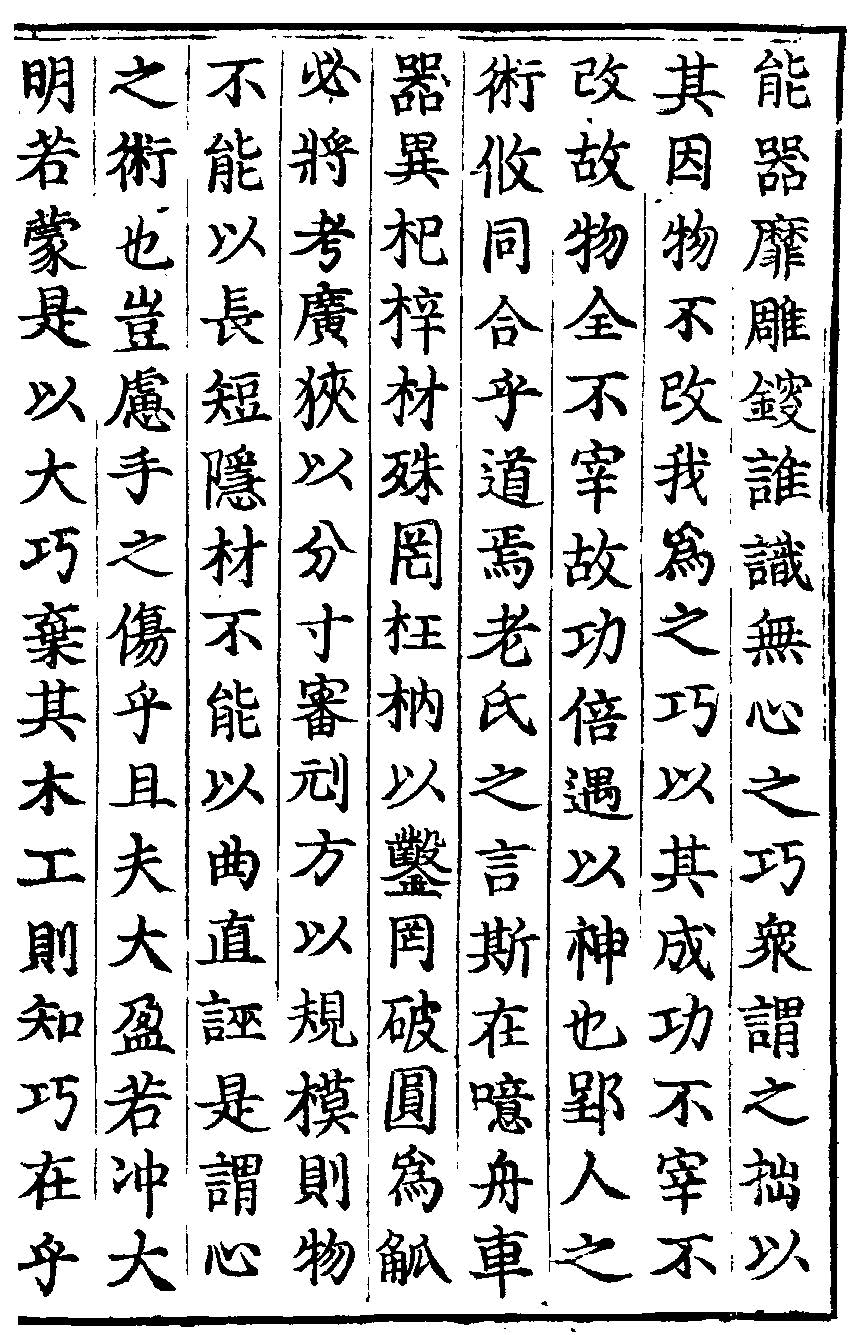 能器靡雕鎪誰識無心之巧衆謂之拙以
其因物不改我爲之巧以其成功不宰不
改故物全不宰故功倍遇以神也郢人之
術攸同合乎道焉老氏之言斯在噫舟車
器異杞梓材殊罔枉枘以鑿罔破圓爲觚
必將考廣狹以分寸審刓方以規模則物
不能以長短隱材不能以曲直誣是謂心
之術也豈慮手之傷乎且夫大盈若冲大
明若蒙是以大巧棄其木工則知巧在乎